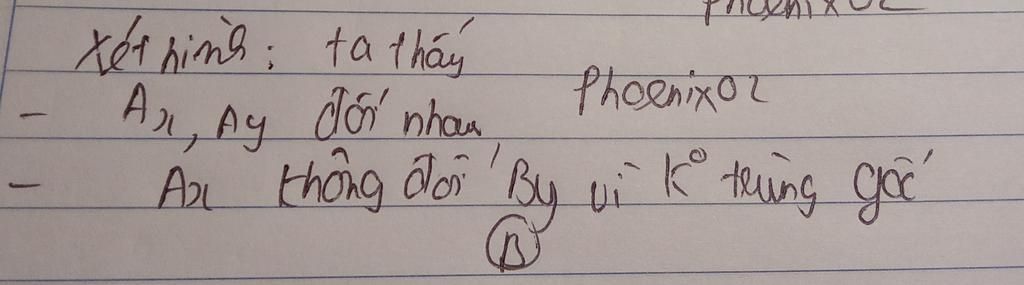 Phoenix02
Xét hình: ta thấy
Phoenix02
- Ax, Ay đối nhau
- Ax không đối By vì k° trùng gốc
B